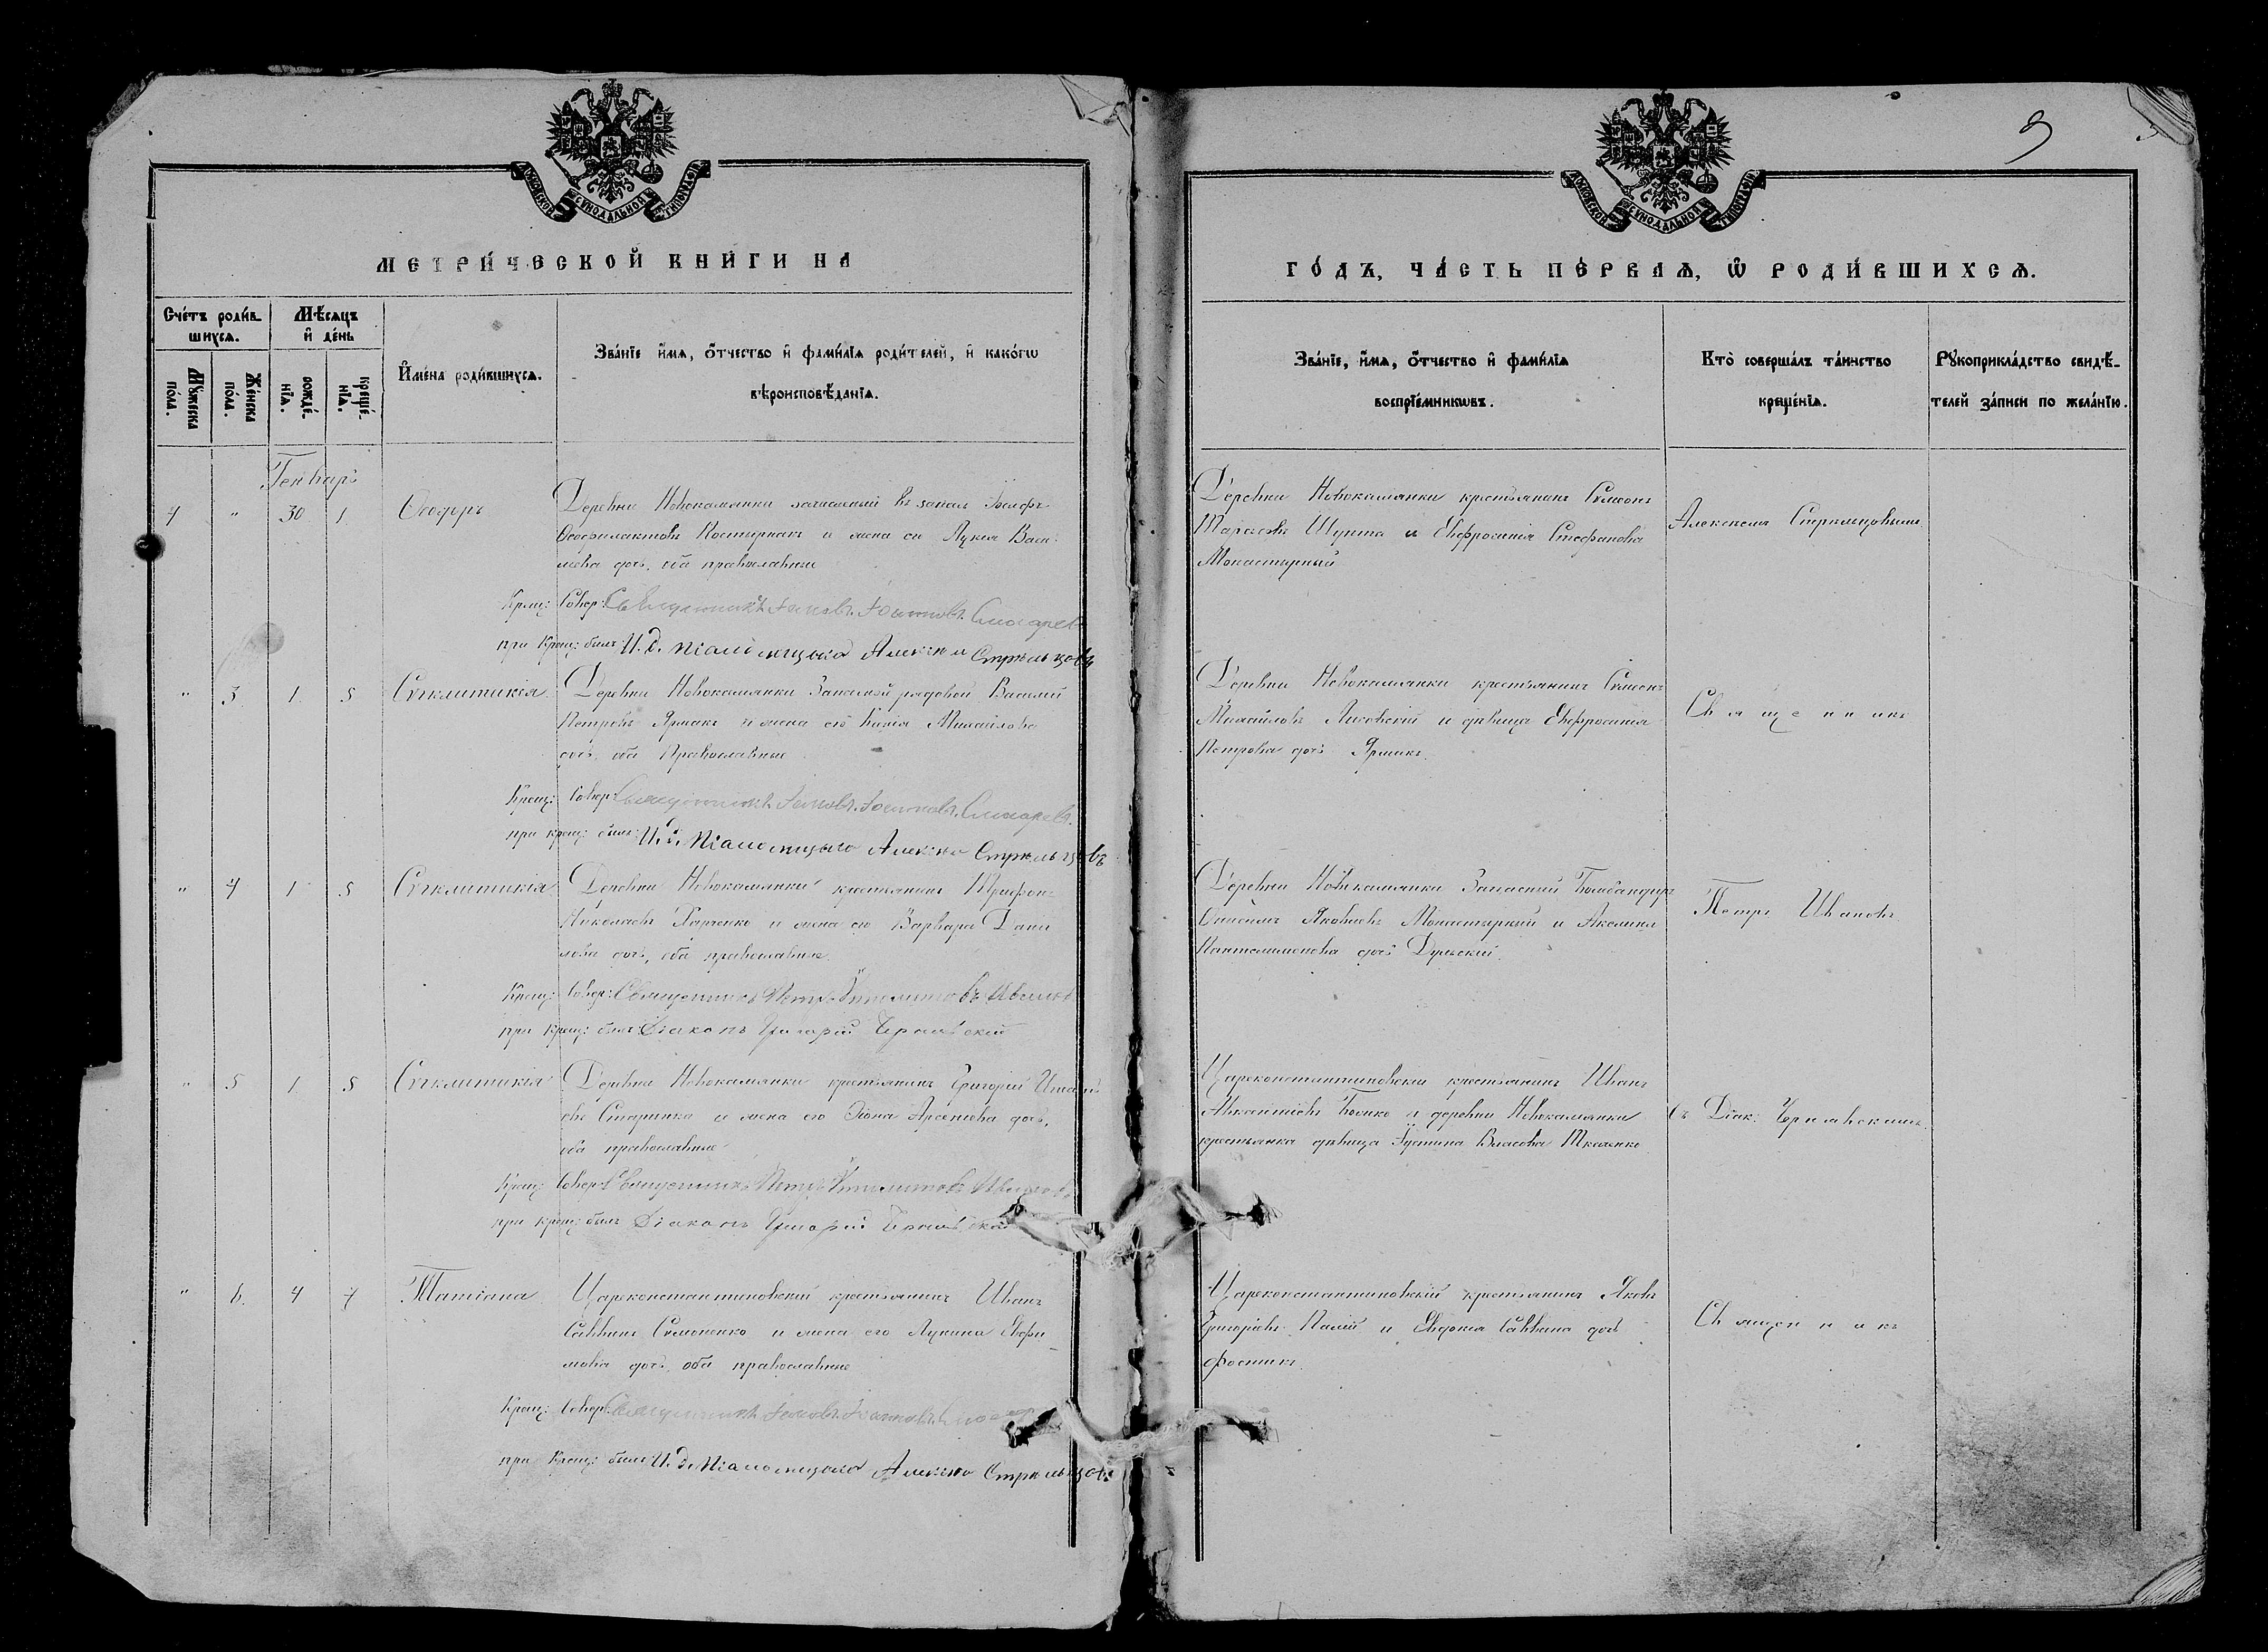 МОСКОВСКОЙ СѴНОДАЛЬНОЙ ТИПОГРАФІИ
МЕТРИ́ЧЕСКОЙ КНИ́ГИ НА
Сче́тъ роди́в-
шихсѧ.
Мѣ́сѧцъ
и҆ де́нь
Мꙋ́жеска
по́ла.
Же́нска
по́ла.
рожде́-
нїѧ.
креще́-
нїѧ.
И҆мена̀ роди́вшихсѧ.
Зва́нїе и҆́мѧ, ѻ҆́тчество и҆ фами́лїѧ роди́телей, и҆ како́гѡ
вѣроисповѣ́данїѧ.
Генварь
4 " 30 1 Ѳеодоръ Деревни Новокамянки запасной Іосифъ
Ѳеофилактовъ и жена его Лукія Васи-
льева дочь, оба православные
Крещ: Совер: Священникъ Іаковъ Іоанновъ
при Крещ: былъ И. д. Псаломщика Алексѣй Стрѣльцовъ
" 3 1 5 Сѵнклитикія Деревни Новокамянки Запасной рядовой Василій
Петровъ Ярмакъ и жена его Михайлова
дочь, оба Православные
Крещ: Совер: Священникъ Іаковъ Іоанновъ
при крещ: былъ И. д. Псаломщика Алексѣй Стрѣльцовъ
" 4 1 5 Сѵнклитикія Деревни Новокамянки крестьянинъ Трифонъ
Николаевъ Харченко и жена его Варвара Дани
лова дочь, оба православные
Крещ: Совер: Священникъ Петръ Ивановъ
при крещ: былъ Діаконъ Григорій
" 5 1 5 Сѵнклитикія Деревни Новокамянки крестьянинъ Григорій
Старинка и жена его Арсентіева дочь,
оба православные
Крещ: Совер: Священникъ Петръ Ивановъ
при крещ: былъ Діаконъ Григорій
" 6. 4 7 Татіана Цареконстантиновскій крестьянинъ Иванъ
Саввинъ Симоненко и жена его Лукина Ефи
мова дочь, оба православные
Крещ: Совер: Священникъ Іаковъ Іоанновъ
при Крещ: былъ И. д. Псаломщика Алексѣй Стрѣльцовъ
МОСКОВСКОЙ СѴНОДАЛЬНОЙ ТИПОГРАФІИ
9
ГО́ДЪ, ЧА́СТЬ ПЕ́РВАѦ, Ѡ҆ РОДИ́ВШИХСѦ.
Зва́нїе, и҆́мѧ, ѻ҆́тчество и҆ фами́лїѧ
воспрїе́мникѡвъ.
Кто̀ соверша́лъ та́инство
креще́нїѧ.
Рꙋкоприкла́дство свидѣ́-
телей за́писи по жела́нїю.
Деревни Новокамянки крестьянинъ Сѵмеонъ
Тарасовъ Шупта и Евфросинія Стефанова
Монастырный
Алексѣемъ Стрѣльцовымъ
Деревни Новокамянки крестьянинъ Сѵмеонъ
Михайловъ и дѣвица Евфросинія
Петрова дочь Ярмакъ.
Священникъ
Деревни Новокамянки Запасный Бомбандиръ
Яковлевъ Монастырный и Акилина
Пантелимонова дочь
Петръ Ивановъ
Цареконстантиновскій крестьянинъ Иванъ
Бойко и деревни Новокамянки
крестьянка дѣвица Іустина Власова Ткаченко
съ Діак:
Цареконстантиновскій крестьянинъ Яковъ
Григорьевъ Палій и Евдокія Саввина дочь
Священникъ